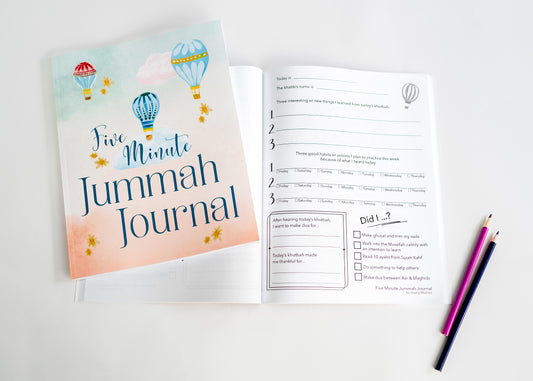 Five
Minute
Jummah
Journal
Today is
The khatib's name is
Three interesting or new things I learned from today's khutbah:
1.
2.
3
Three good habits or actions I plan to practice this week
because of what I heard today:
1. Friday Saturday Sunday Monday Tuesday Wednesday Thursday
2. Friday Saturday Sunday Monday Tuesday Wednesday Thursday
3 Friday Saturday Sunday Monday Tuesday Wednesday Thursday
After hearing today's khutbah,
I want to make dua for...
Today's khutbah made
me thankful for...
Did I ...?
Make ghusl and trim my nails
Walk into the Musallah calmly with
an intention to learn
Read 10 ayahs from Surah Kahf
Do something to help others
Make dua between Asr & Maghrib
Five Minute Jummah Journal
for Young Muslims